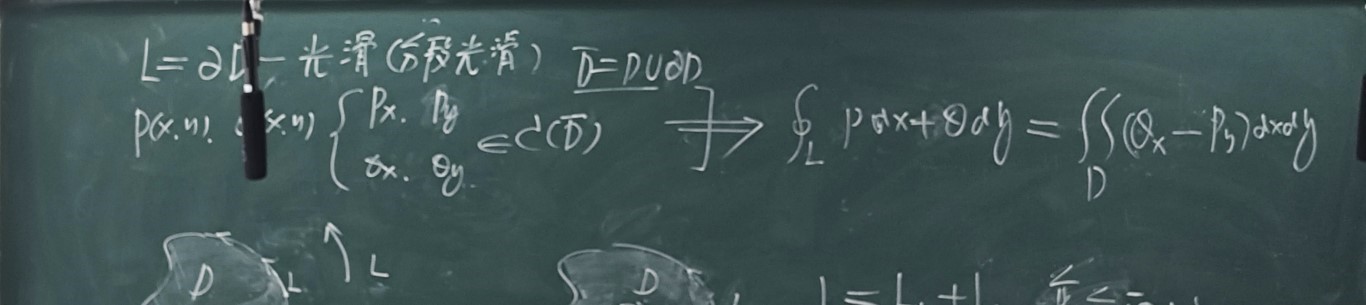 L=∂D—光滑(分段光滑) D̅=D∪∂D
P(x,y). (x,y) { Px. Py Qx. Qy ∈C'(D̅) ] ⟹ ∮_L Pdx+Qdy = ∬_D (Qx−Py)dxdy
D L L D L=L₁+L